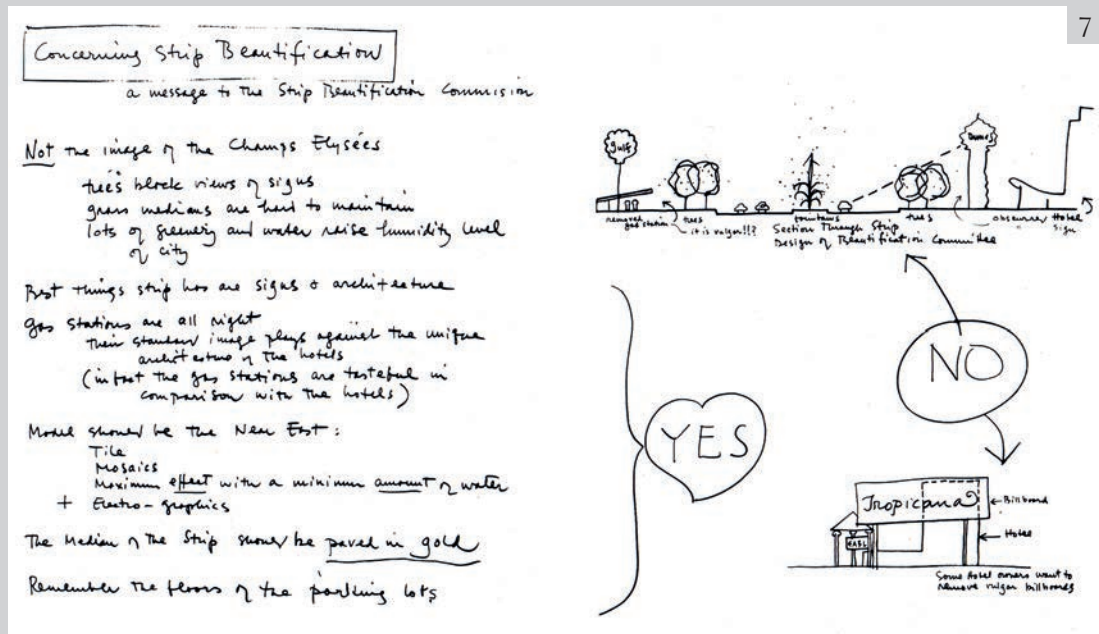 7
Concerning Strip Beautification
a message to the Strip Beautification Commision
Not the image of the Champs Elysées
trees block views of signs
grass medians are hard to maintain
lots of greenery and water raise humidity level
of city
Best things strip has are signs & architecture
Gas stations are all right
their standard image plays against the unique
architecture of the hotels
(in fact the gas stations are tasteful in
comparison with the hotels)
Model should be the Near East:
Tile
Mosaics
Maximum effect with a minimum amount of water
+ Electro-graphics
The Median of the Strip should be paved in gold
Remember the floors of the parking lots
YES
Gulf
Dunes
removed
gas station
trees
it is vulgar!!?
fountains
trees
observer
Hotel
sign
Section Through Strip
Design of Beautification Committee
NO
Tropicana
Billboard
Hotel
Some Hotel owners want to
remove vulgar billboards